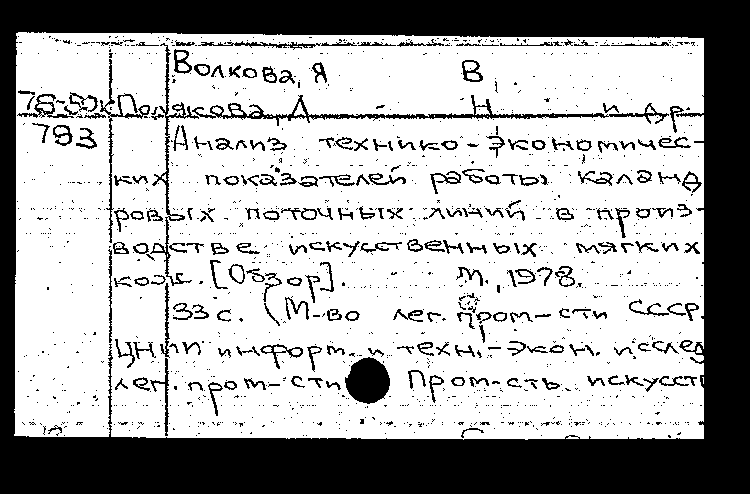 Волкова, Я В
78-59к Полякова, Л Н и др.
793 Анализ технико-экономичес-
ких показателей работы каланд
ровых поточных линий в произ-
водстве искусственных мягких
кож. [Обзор]. М., 1978.
33 с. (М-во лег. пром-сти СССР.
ЦНИИ информ. и техн.-экон. исслед
лег. пром-сти Пром-сть искусств